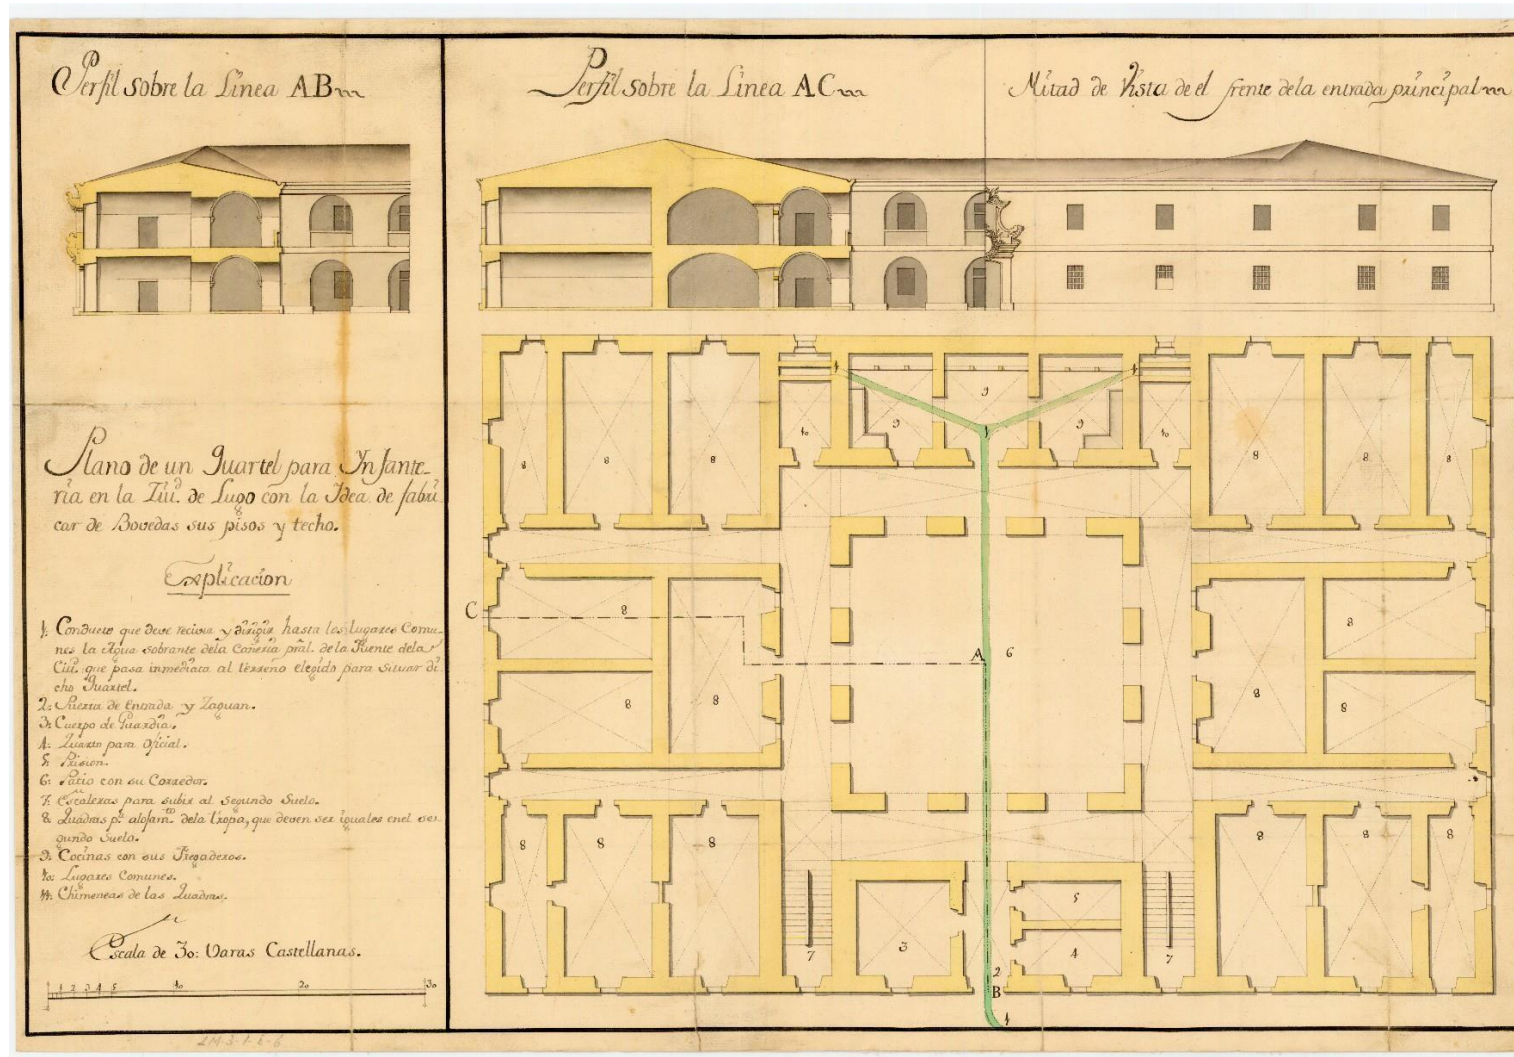 Perfil sobre la Linea AB
Perfil sobre la Linea AC
Mitad de Vista de el frente dela entrada principal
Plano de un Quartel para Infante-
ria en la Ziud. de Lugo con la Idea de fabri
car de Bovedas sus pisos y techo.
Explicacion
1. Conducto que deve recivir y dirigir hasta los lugares Comu-
nes la Agua sobrante dela Cañeria pral. de la Fuente dela
Ciud. que pasa inmediata al terreno elegido para situar di
cho Quartel.
2. Puerta de Entrada y Zaguan.
3. Cuerpo de Guardia.
4. Quarto para Oficial.
5. Prision.
6. Patio con su Corredor.
7. Escaleras para subir al Segundo Suelo.
8. Quadras pa. alojamto. dela tropa, que deven ser iguales enel se-
gundo Suelo.
9. Cocinas con sus Fregaderos.
10. Lugares Comunes.
11. Chimeneas de las Quadras.
Escala de 30: Varas Castellanas.
1 2 3 4 5 10 20 30
1 1
9
10 9 1 9 10
8 8 8 8 8 8
C 8 8
A 6
8 8 8 8
8 8 8 8 8 8
5
7 3 4 7
2
B
1